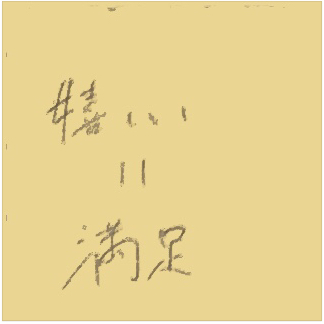 嬉しい
||
満足